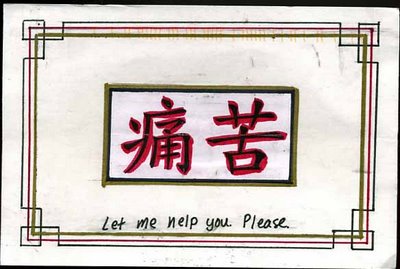 痛苦
Let me help you. Please.